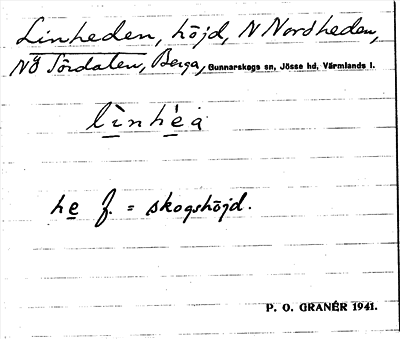 Linheden, höjd, N Nordheden,
NÖ Tördaten, Berga, Gunnarskogs sn, Jösse hd, Värmlands l.
lìnhéa
he f. = skogshöjd.
P. O. GRANÉR 1941.